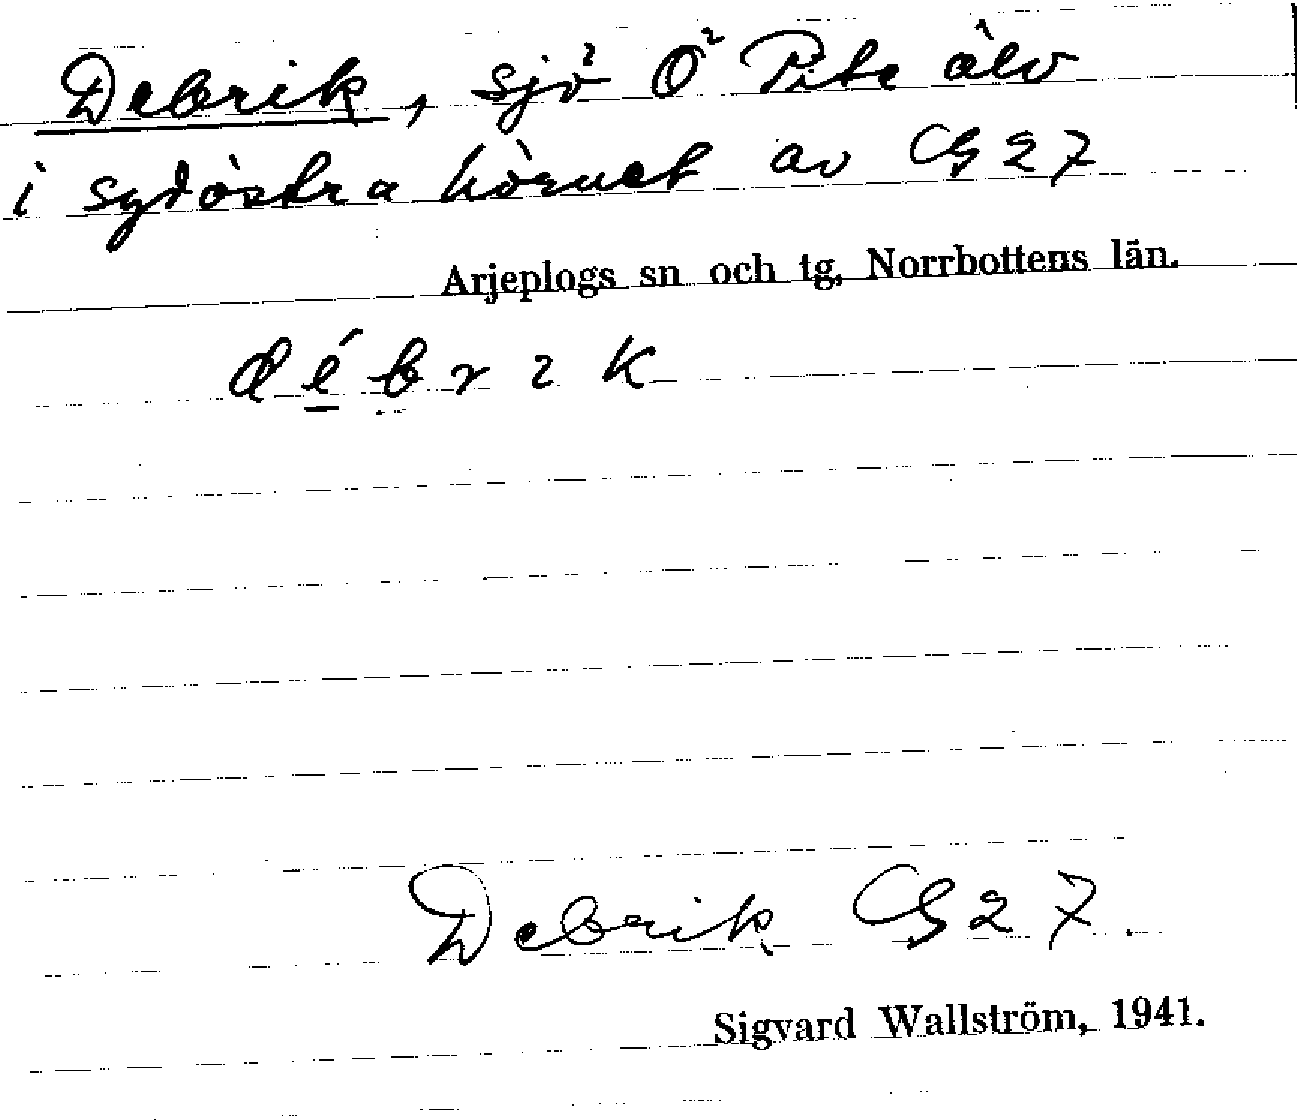 Debrik, sjö Ö Pite älv
i sydöstra hörnet av G 27
Arjeplogs sn och tg, Norrbottens län.
d é b r ı k
Debrik G 27.
Sigvard Wallström, 1941.